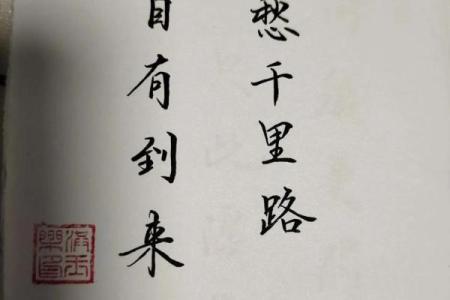 愁千里路
自有到来